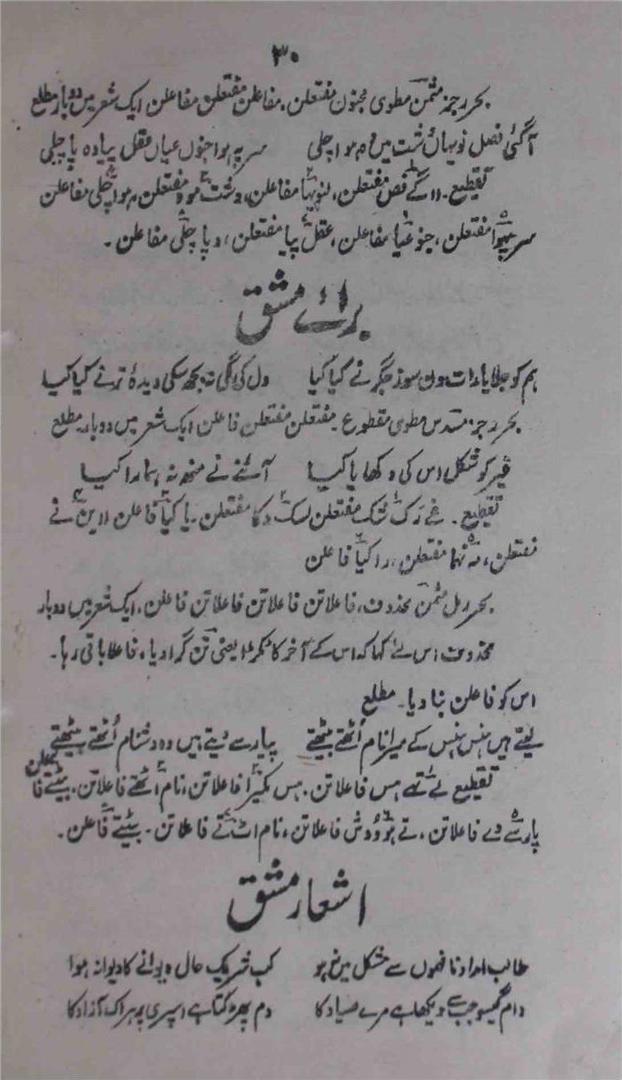 ۳۰
بحر رجز مثمن مطوی مجنون مفتعلن، مفاعلن مفتعلن مفاعلن ایک شعر میں دوبار مطلع
آگئی فصل نوبہار دشت میں وہ ہوا چلی سر پہ ہوا جنوں عیاں عقل پیادہ پا چلی
تقطیع۔ اا گے فص مفتعلن، لنو بہا مفاعلن، دشت موہ مفتعلن، ہوا چلی مفاعلن
سر پہوا مفتعلن، جنو عیا مفاعلن، عقل پیا مفتعلن، دپا چلی مفاعلن۔
برائے مشق
ہم کو جلایا رات دن سوز جگر نے کیا کیا دل کی لگی نہ بجھ سکی دیدۂ تر نے کیا کیا
بحر رجز مسدس مطوی مقطوع مفتعلن مفتعلن فاعلن ایک شعر میں دوبار مطلع
غیر کو شکل اس کی دکھایا کیا آئنے نے منھ نہ ہمارا کیا
تقطیع۔ غے رک شک مفتعلن لسک دکا مفتعلن۔ یا کیا فاعلن اا ین نے
مفتعلن، نہ ہما مفتعلن، را کیا فاعلن
بحر رمل مثمن محذوف، فاعلاتن فاعلاتن فاعلاتن فاعلن، ایک شعر میں دوبار
محذوف اس لئے کہا کہ اس کے آخر کا ٹکڑا یعنی تن گرا دیا، فاعلا باقی رہا۔
اس کو فاعلن بنا دیا۔ مطلع
لیتے ہیں ہنس ہنس کے میرا نام اُٹھتے بیٹھتے پیار سے دیتے ہیں وہ دشنام اُٹھتے بیٹھتے
تقطیع لے تے ہس فاعلاتن، ہس کمیرا فاعلاتن، نام اٹھتے فاعلاتن، بیٹتے فاعلن
پار سے دے فاعلاتن، تے ہو وہ دش فاعلاتن، نام اٹ تے فاعلاتن۔ بیٹتے فاعلن۔
اشعار مشق
طالب امداد نا فہموں سے مشکل میں نہ ہو کب شریک حال دیوانے کا دیوانہ ہوا
دام گیسو جب سے دیکھا ہے مرے صیاد کا دم پھڑکتا ہے اسیری پر ہر اک آزاد کا